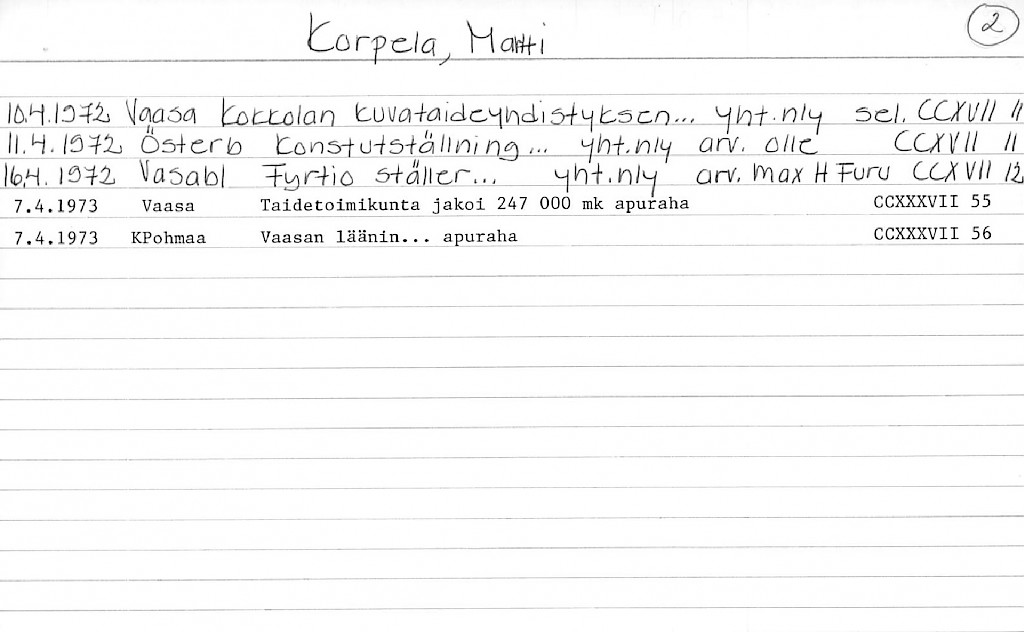 Korpela, Martti 2
10.4.1972 Vaasa Kokkolan kuvataideyhdistyksen... yht.nly sel. CCXVII 11
11.4.1972 Österb Konstutställning... yht.nly arv. Olle CCXVII 11
16.4.1972 Vasabl Fyrtio ställer... yht.nly arv. Max H Furu CCXVII 12
7.4.1973 Vaasa Taidetoimikunta jakoi 247 000 mk apuraha CCXXXVII 55
7.4.1973 KPohmaa Vaasan läänin... apuraha CCXXXVII 56